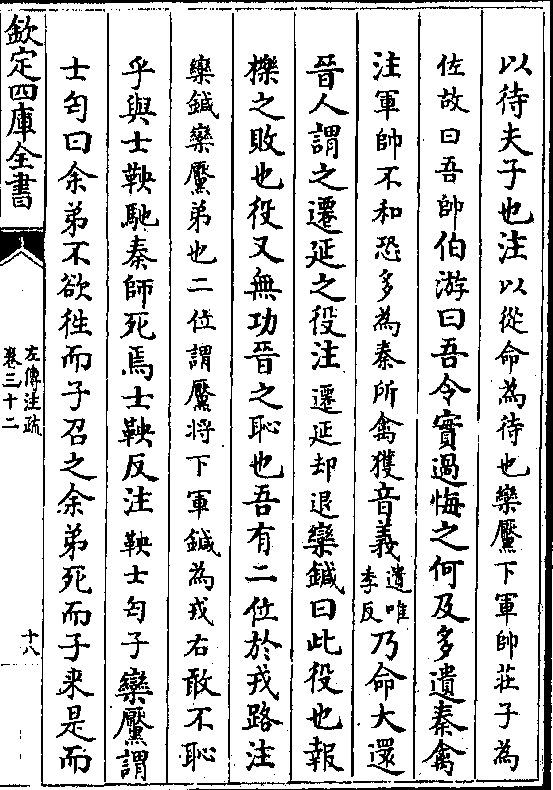 以待夫子也注以從命為待也欒黶下軍帥莊子為
佐故曰吾帥伯游曰吾令實過悔之何及多遺秦禽
注軍帥不和恐多為秦所禽獲音義遺唯李反乃命大還
晉人謂之遷延之役注遷延却退欒鍼曰此役也報
櫟之敗也役又無功晉之恥也吾有二位於戎路注
欒鍼欒黶弟也二位謂黶將下軍鍼為戎右敢不恥
乎與士鞅馳秦師死焉士鞅反注鞅士匄子欒黶謂
士匄曰余弟不欲徃而子召之余弟死而子来是而
欽定四庫全書
左傳注疏
卷三十二
十八